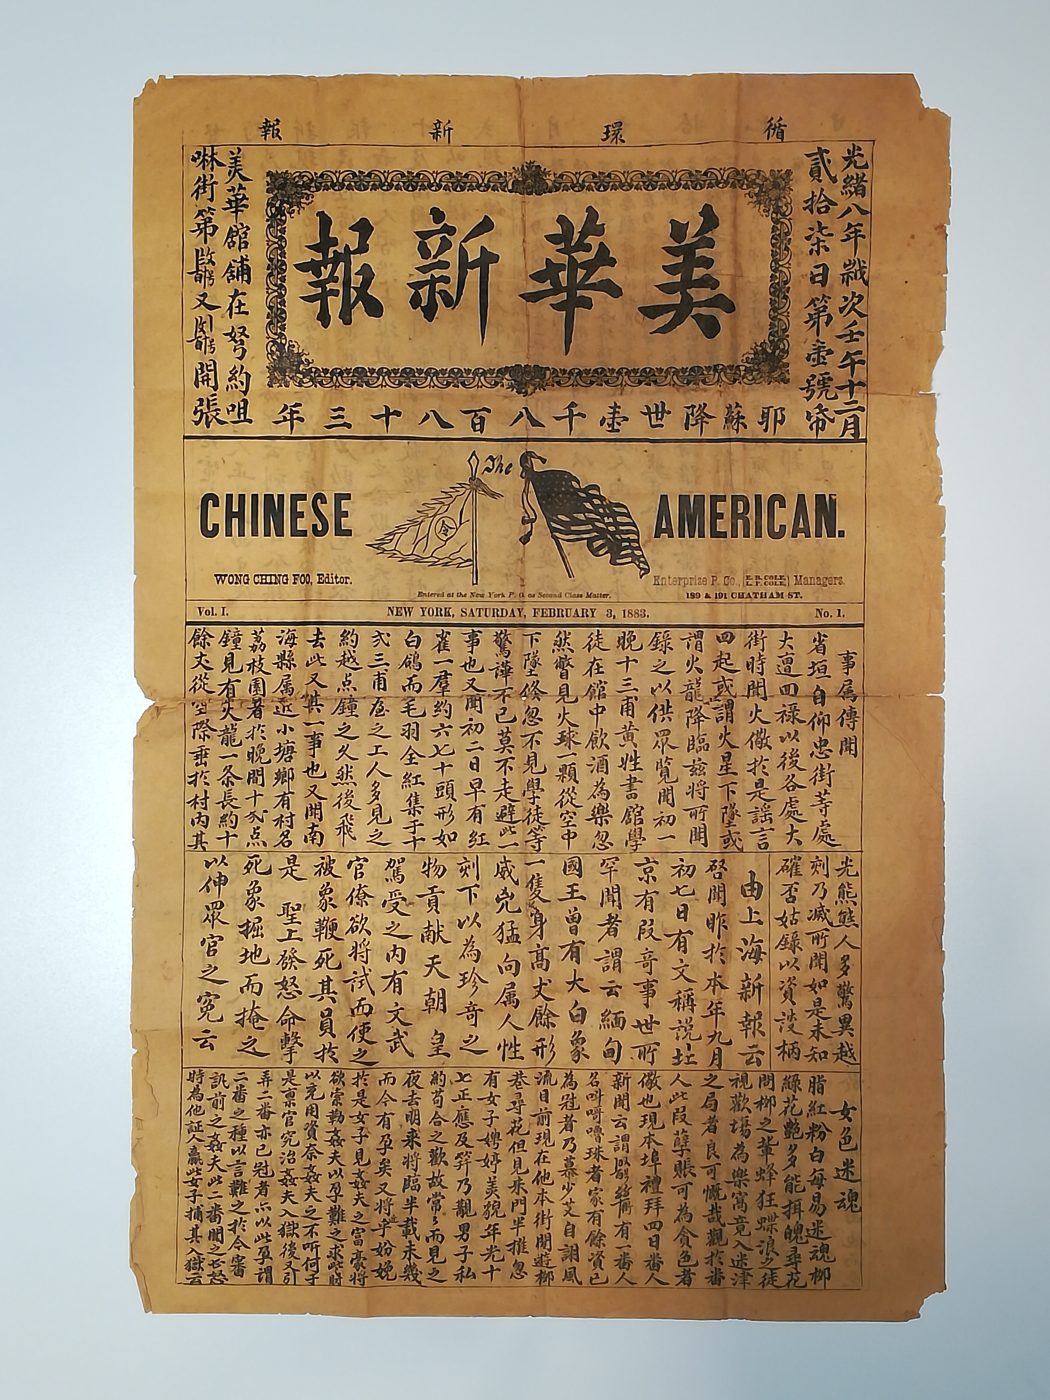 循環新報
光緒八年歲次壬午十二月
貳拾柒日第壹號
美華新報
美華舘舖在弩約咀
啉街第
又
開張
耶蘇降世壹千八百八十三年
The
CHINESE AMERICAN.
WONG CHING FOO, Editor.
Enterprize P. Co., Managers.
Entered at the New York P. O. as Second Class Matter.
189 & 191 CHATHAM ST.
Vol. I. NEW YORK, SATURDAY, FEBRUARY 3, 1883. No. 1.
事属傳聞
省垣自仰忠街等處
大遭回禄以後各處大
街時聞火儆於是謡言
四起或謂火星下墜或
謂火龍降臨兹將所聞
錄之以供眾覽聞初一
晚十三甫黄姓書館學
徒在館中飲酒為樂忽
然瞥見火球一顆從空中
下墜倐忽不見學徒等
驚譁不已莫不走避此一
事也又聞初二日早有紅
雀一羣約六七十頭形如
白鴿而毛羽全紅集于十
弍三甫
之工人多見之
約越点鐘之久然後飛
去此又其一事也又聞南
海縣属近小塘鄉有村名
荔枝園者於晚間十弍点
鐘見有火龍一条長約十
餘丈從空際垂於村内其
光熊熊人多驚異越
刻乃滅所聞如是未知
確否姑錄以資談柄
由上海新報云
啓聞昨於本年九月
初七日有文稱說
京有段竒事世所
罕聞者謂云緬甸
國王曾有大白象
一隻身高丈餘形
威兇猛向属人性
刻下以為珍竒之
物貢献天朝 皇
駕受之内有文武
官僚欲將試而使之
被象鞭死其員於
是 聖上發怒命擊
死象掘地而掩之
以伸眾官之寃云
女色迷魂
脂紅粉白每易迷魂柳
綠花艷多能揖魄尋花
問柳之輩蜂狂蝶浪之徒
視歡塲為樂窩竟入迷津
之局者良可慨哉觀於番
人此段孽賬可為貪色者
儆也現本埠禮拜四日番人
新聞云謂
絲稱有一番人
名
嚕珠者家有餘資已
為冠者乃慕少艾自詡風
流日前現在他本街閒遊柳
巷尋花但見朱門半推忽
有女子娉婷美貌年光十
七正應及筓乃覯男子私
約苟合之歡故常々而見之
夜去明來將臨半載未幾
而今有孕矣又將乎妢娩
於是女子見姦夫之富豪將
欲索勒姦夫以孕難之求些財
以充用資奈姦夫之不听何子
是禀官究治姦夫入獄後又引
弄二番亦已冠者点以此孕謂
二番之種以言難之於今審
訊前之姦夫此二番聞之
時為他証人贏此女子捕其入獄云